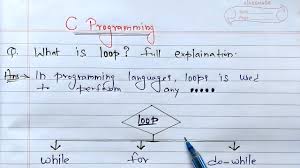 C Programming
Q. What is loop? full explaination.
Ans → In programming languages, loops is used
to perform any .....
loop
while for do-while